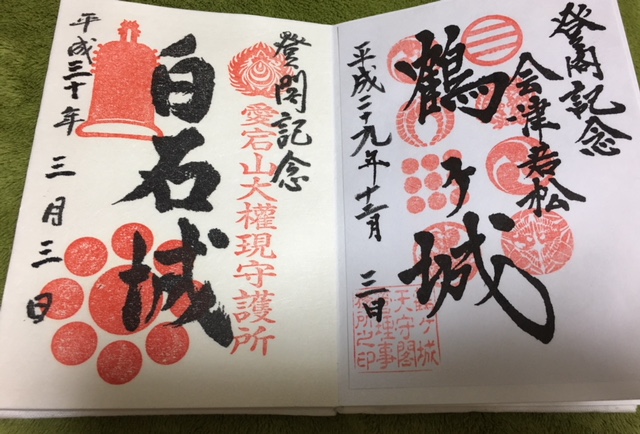 登閣記念
会津若松
鶴ヶ城
平成二十九年十二月 三日
鶴ヶ城
天守閣
管理事
務所之印
登閣記念
愛宕山大權現守護所
白石城
平成三十年 三月三日